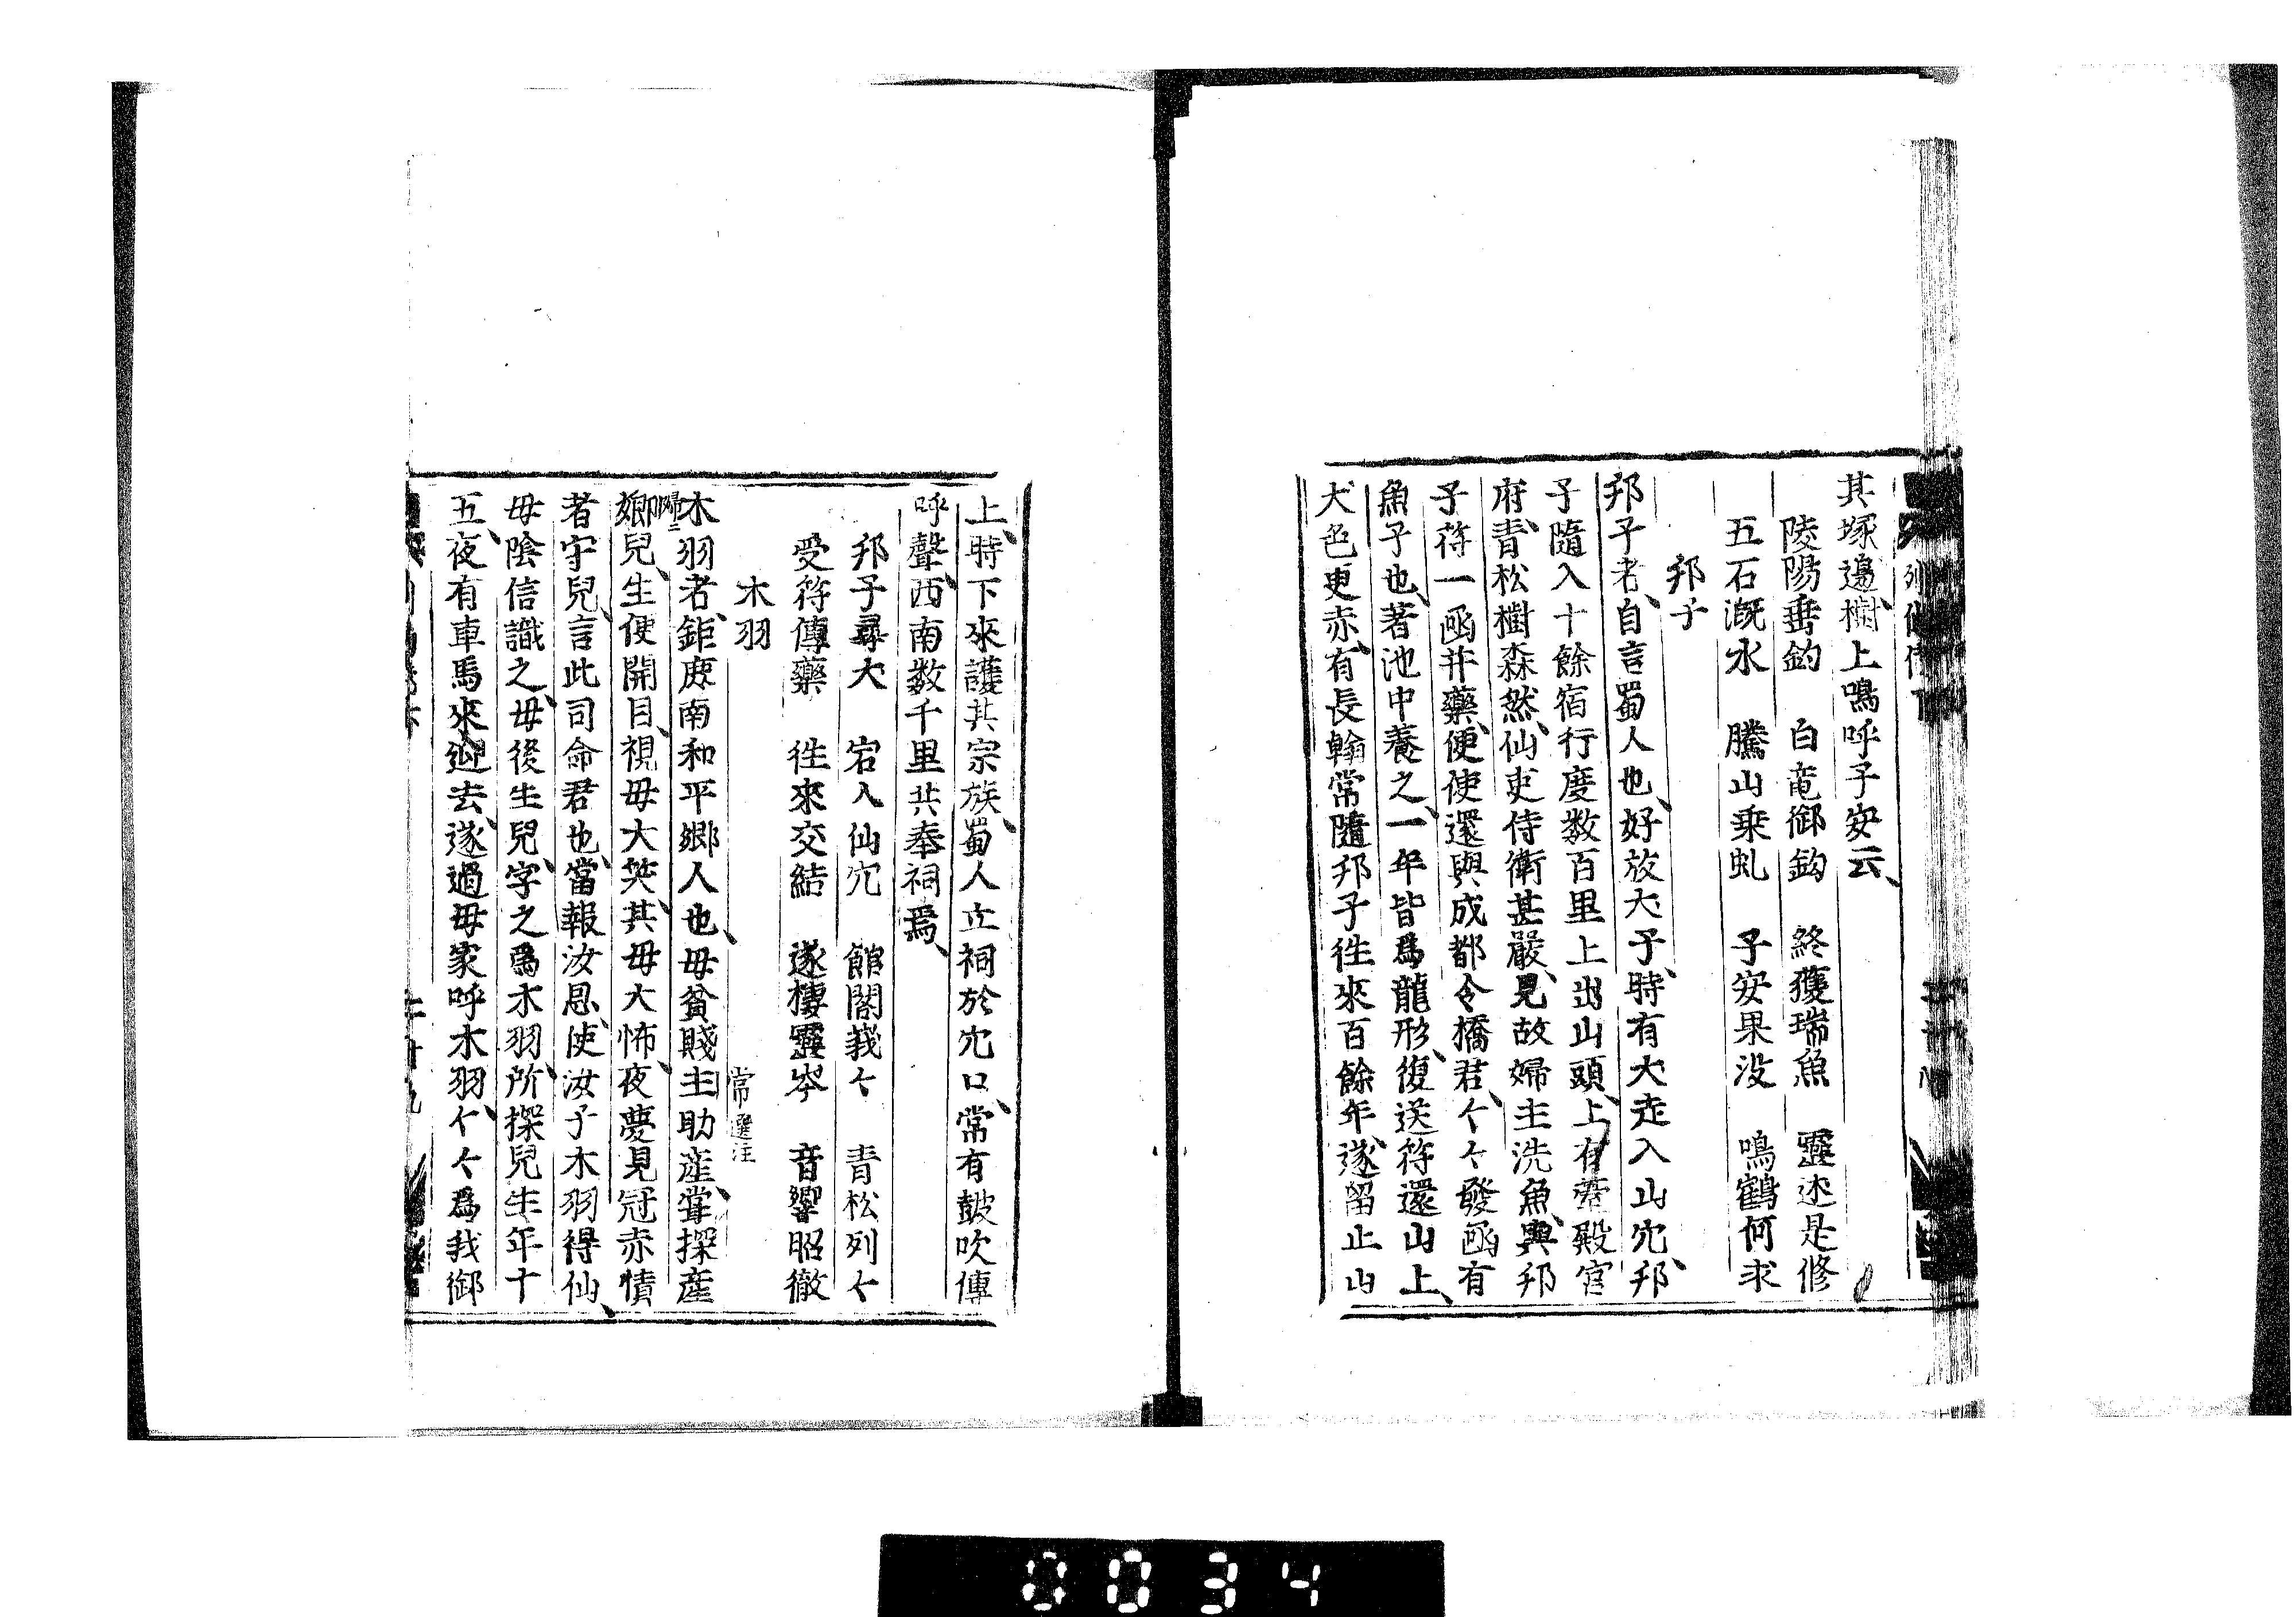 其塚邊樹上鳴呼子安云
陵陽垂釣 白竜御鈎 終獲瑞魚 靈迹是修
五石漑水 騰山乗虬 子安果没 鳴鶴何求
邦子
邦子者自言蜀人也好放犬子時有犬走入山穴邦
子隨入十餘宿行度数百里上出山頭上有臺殿宮
府青松樹森然仙吏侍衛甚嚴見故婦主洗魚與邦
子符一函并藥便使還與成都令橋君々々發函有
魚子也著池中養之一年皆爲龍形復送符還山上
犬色更赤有長翰常隨邦子徃來百餘年遂留止山
上時下來護其宗族蜀人立祠於穴口常有皷吹傳
呼聲西南数千里共奉祠焉
邦子尋犬 宕入仙穴 館閣峩々 青松列々
受符傳藥 徃來交結 遂棲靈岑 音響昭徹
木羽
木羽者鉅鹿南和平郷人也母貧賤主助産甞探産
婦兒生便開目視母大笑其母大怖夜夢見冠赤幘
者守兒言此司命君也當報汝恩使汝子木羽得仙
母陰信識之母後生兒字之爲木羽所探兒生年十
五夜有車馬來迎去遂過母家呼木羽々々爲我御
0034